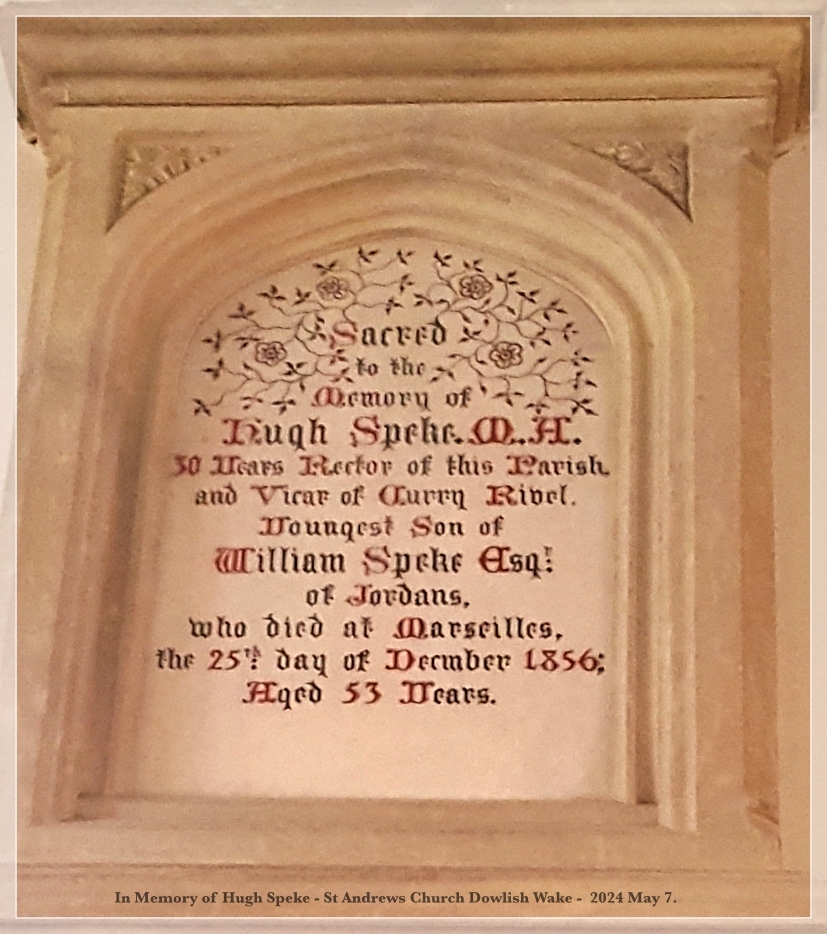 Sacred
to the
Memory of
Hugh Speke. M.A.
30 Years Rector of this Parish
and Vicar of Curry Rivel.
Youngest Son of
William Speke Esqr.
of Jordans,
who died at Marseilles,
the 25th day of Decmber 1856;
Aged 53 Years.
In Memory of Hugh Speke - St Andrews Church Dowlish Wake - 2024 May 7.